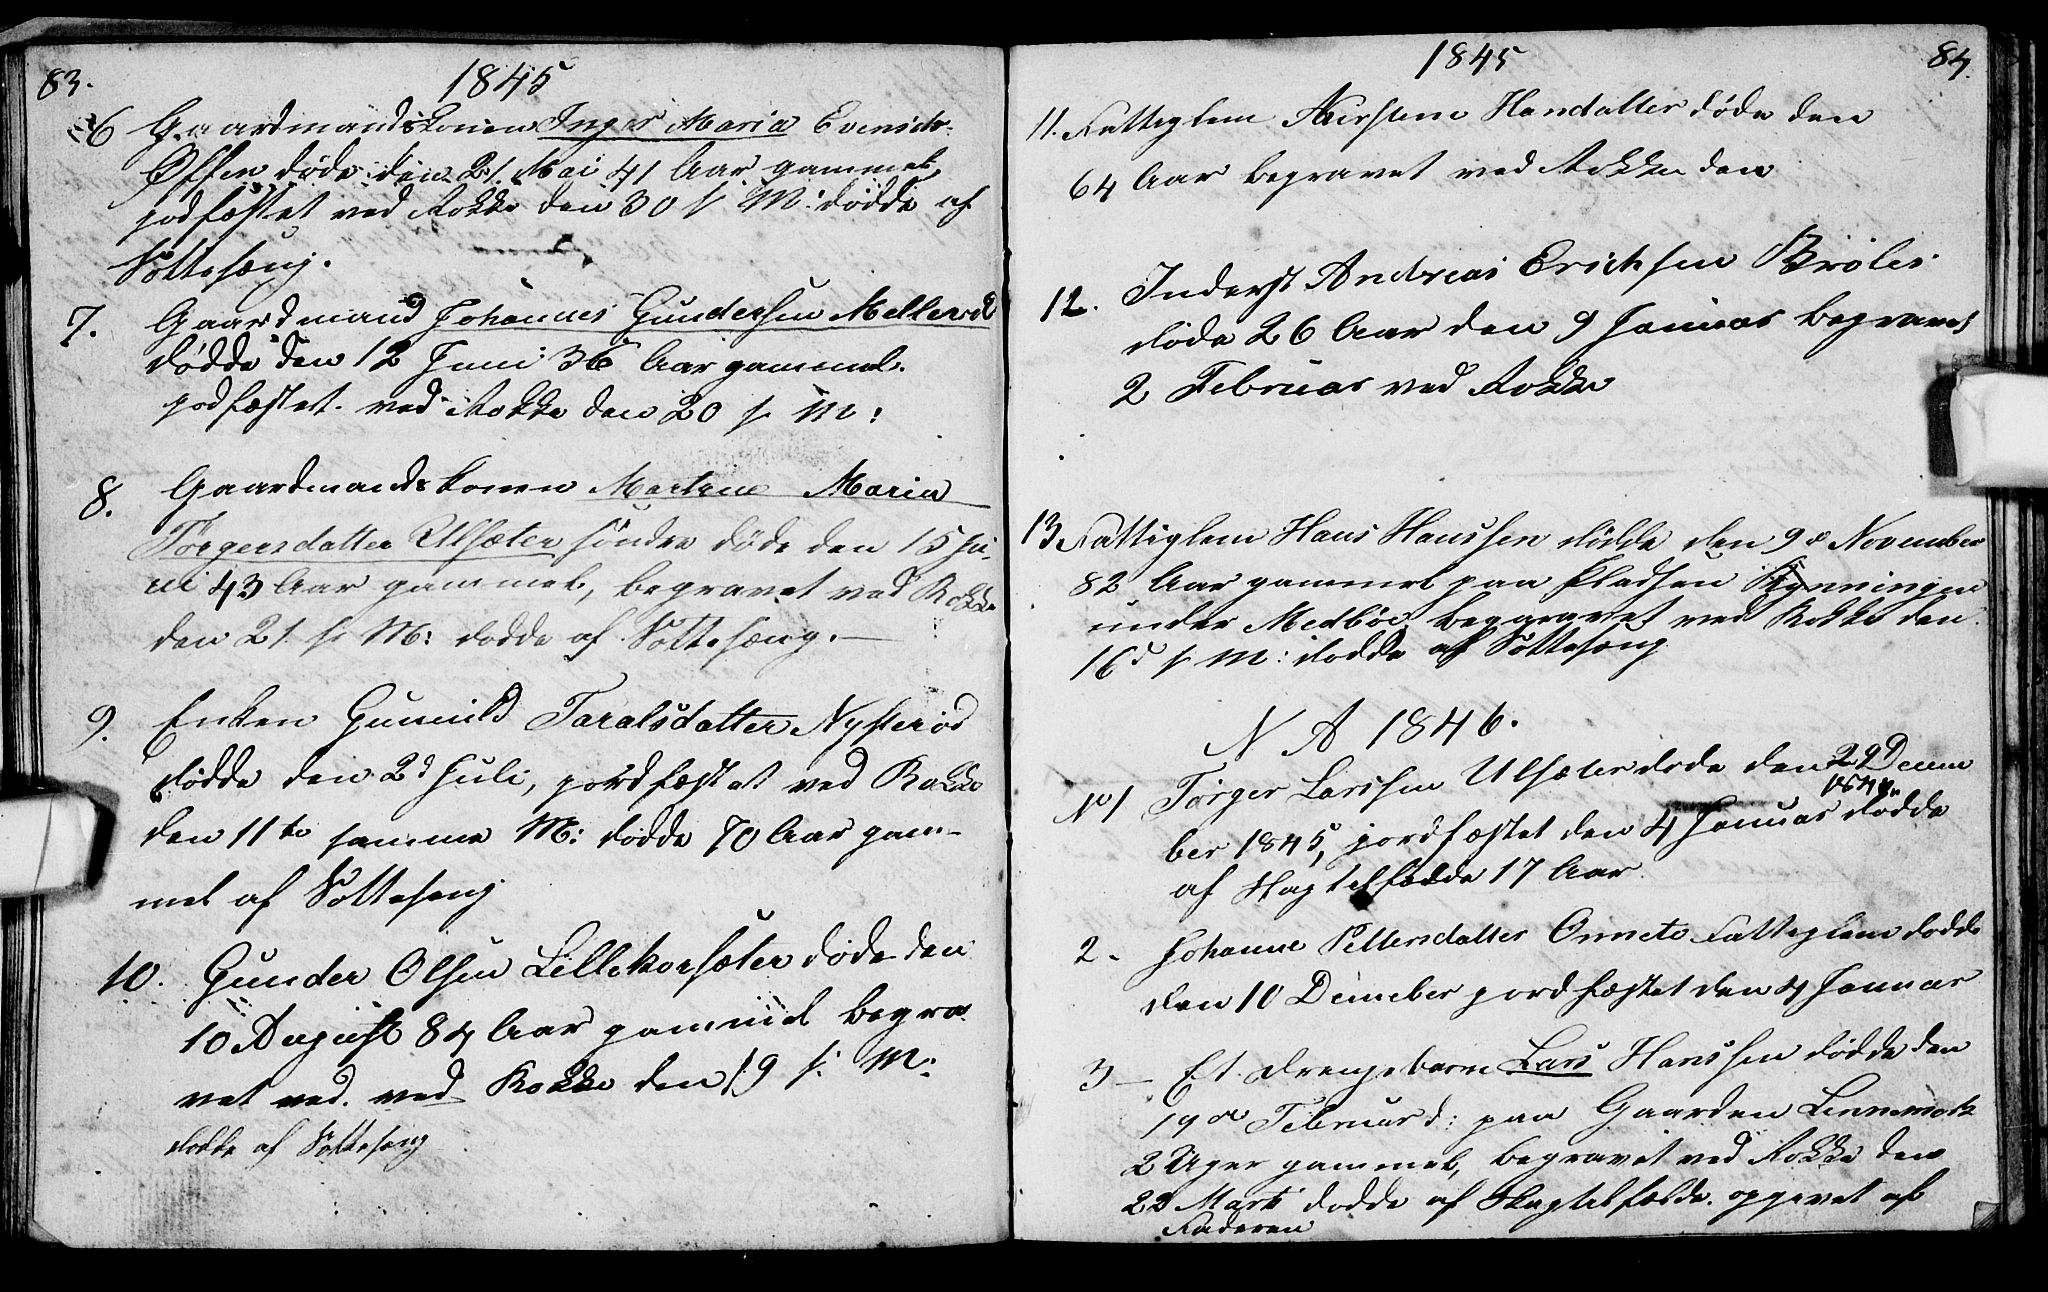 83.
1845
6 Gaardmandskonen Inger Maria Evensdr.
døde den 21 Mai 41 Aar gammel,
jodfæstet ved Rokke den 30 s M: dødde af
Sottesæng.
7. Gaardmand Johannes Gundersen Mellerød
dødde den 12 Juni 36 Aar gammel.
jodfæstet ved Rokke den 20 s M:
8. Gaardmandskonen Martine Maria
Törgersdatter Ulsæter söndre døde den 15 Ju-
ni 43 Aar gammel, begravet ved Rokke
den 21 s M: dødde af Sottesæng.
9. Enken Gunnild Taralsdatter Nysterød
dødde den 2d Juli, jordfæstet ved Rokke
den 11te samme M: dødde 70 Aar gam-
mel af Sottesæng
10. Gunder Olsen Lillekorsæter døde den
10 August 84 Aar gammel begra
vet ved. ved Rokke den 19 s. M:
dødde af Sottesæng
1845
84.
11. Fattiglem Kirstine Hansdatter døde den
64 Aar begravet ved Rokke den
12. Inderst Andreas Erichsen Bröler
døde 26 Aar den 9 Januar begravet
2 Februar ved Rokke
13 Fattiglem Hans Hanssen dødde den 9de November
82 Aar gammel paa Pladsen Rønningen
under Medböe begravet ved Rokke den
16d s M: dødde af Sottesæng
N A 1846.
No 1 Törger Larssen Ulsæter døde den 22 Decem
1846
ber 1845, jordfæstet den 4 Januar dødde
af Slagtelfædde 17 Aar.
2. Johanne Pettersdatter Fattiglem dødde
den 10 Decmeber jordfæstet den 4 Januar
3 - Et drengebarn Lars Hanssen dødde den
19de Februar d: paa Gaarden Linnemork
2 Uger gammel, begravet ved Rokke den
22 Marts dødde af Slagtelfælde. opgivet af
Faderen